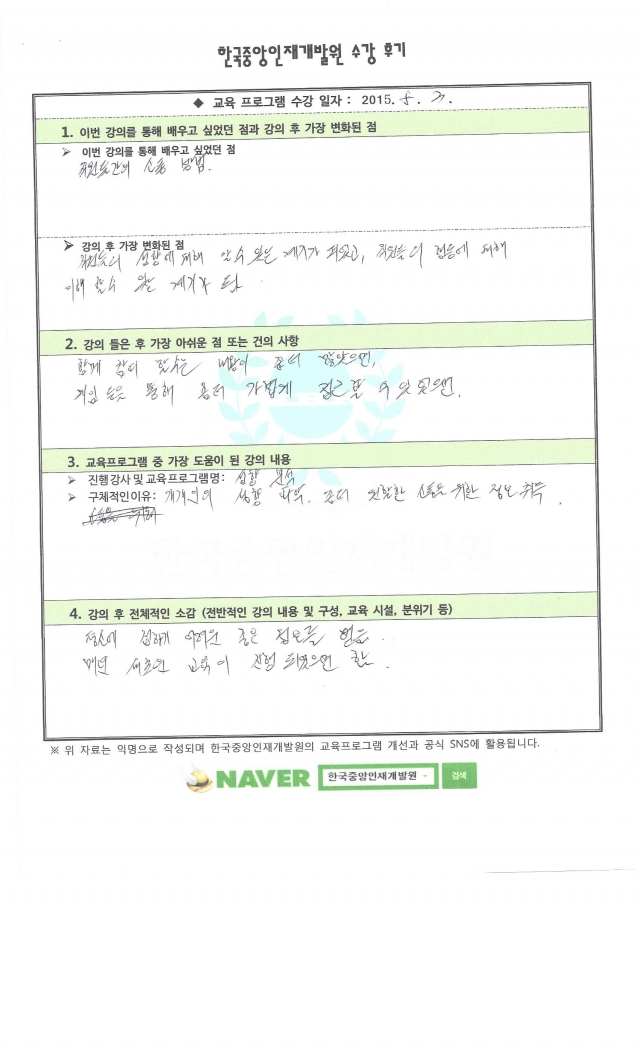 한국중앙인재개발원 수강 후기
◆ 교육 프로그램 수강 일자 : 2015. 8. 7.
1. 이번 강의를 통해 배우고 싶었던 점과 강의 후 가장 변화된 점
➢ 이번 강의를 통해 배우고 싶었던 점
직원들간의 소통 방법.
➢ 강의 후 가장 변화된 점
직원들의 성향에 대해 알 수 있는 계기가 되었고, 직원들의 행동에 대해
이해 할 수 있는 계기가 됨.
2. 강의 들은 후 가장 아쉬운 점 또는 건의 사항
함께 참여 할수있는 내용이 좀더 많았으면,
게임 등을 통해 좀더 가볍게 접근 할 수 있었으면.
3. 교육프로그램 중 가장 도움이 된 강의 내용
➢ 진행강사 및 교육프로그램명 : 성향 분석
➢ 구체적인이유: 개개인의 성향 파악. 좀더 원활한 소통을 위한 정보 취득.
4. 강의 후 전체적인 소감 (전반적인 강의 내용 및 구성, 교육 시설, 분위기 등)
평소에 접하기 어려운 좋은 정보를 얻음.
매년 새로운 교육이 진행 되었으면 함.
※ 위 자료는 익명으로 작성되며 한국중앙인재개발원의 교육프로그램 개선과 공식 SNS에 활용됩니다.
NAVER 한국중앙인재개발원 검색
한국중앙인재개발원